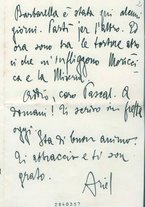 Barbarella è stata qui alcuni
giorni. Partì jer l'altro. Ed
ora sono tra le torture atro
ci che m'infliggono Moricci
ca e la Miseria
Addio, caro Pascal. A
domani! Ti scrivo in fretta
oggi Sta di buon animo.
Ti abbraccio e ti son
grato.
Ariel